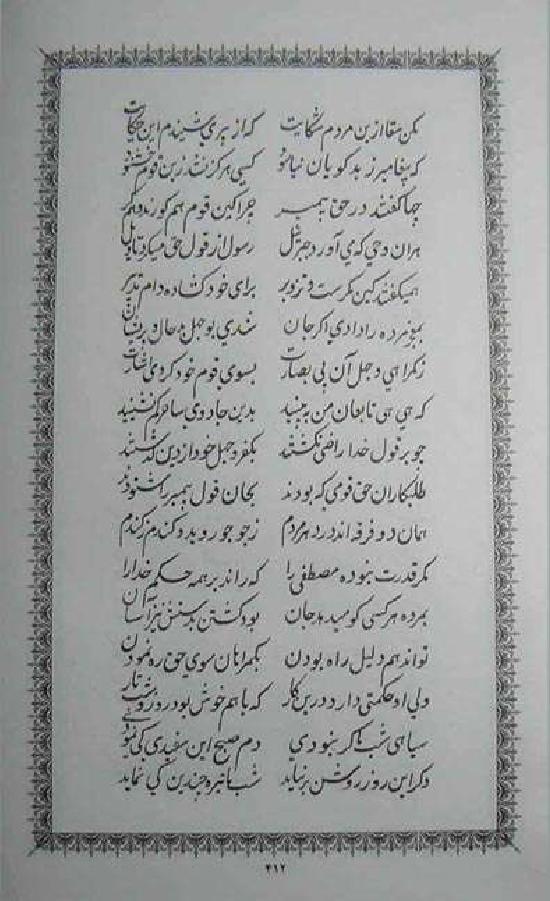 مکن سقا ازین مردم شکایت که از پیری شنیدم این حکایت
که پیغامبر ز بد گویان نیاسود کسی هرگز نشد زین قوم خشنود
چها گفتند در حق پیمبر چرا کین قوم هم کورند و هم کر
هر آن وحی که می آورد جبرئیل رسول از قول حق میکرد تاویل
همیگفتند کین مکرست و تزویر برای خود گشاده دام تدبیر
بمو مرده را دادی اگر جان شدی بوجهل بد حال و پریشان
ز گمراهی و جهل آن بی بصارت بسوی قوم خود کردی اشارت
که هی هی تابعان من ببینید بدین جادوی ساحر کم نشینید
چو بر قول خدا راضی نگشتند بکفر و جهل خود از دین گذشتند
طلبکاران حق قومی که بودند بجان قول پیمبر را شنودند
همان دو فرقه اند در هر مردم ز جو جو روید و گندم ز گندم
مگر قدرت نبوده مصطفی را که راند بر همه حکم خدارا
بمرده هر کسی کو میدهد جان بود کشتن بدستش نیز آسان
تواند هم دلیل راه بودن بگمراهان سوی حق ره نمودن
ولی او حکمتی دارد درین کار که باهم خوش بود روز و شب تار
سیاهی شب اگر نبودی دم صبح این سفیدی کی نمودی
وگر این روز روشن بر نیاید شب تیره چندین کی نماید
۴۱۲